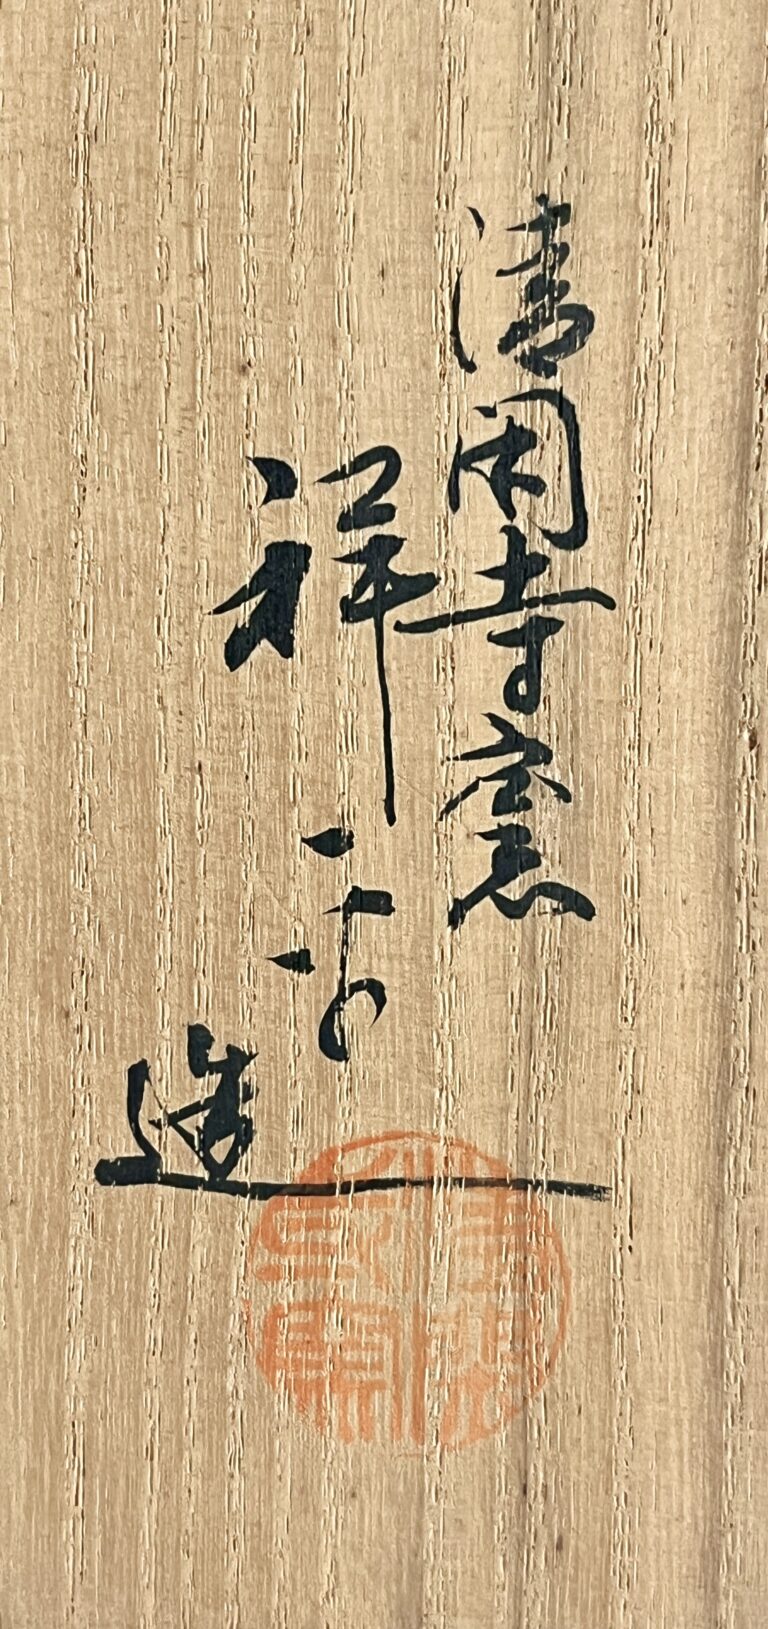 清閑寺窯
祥平造